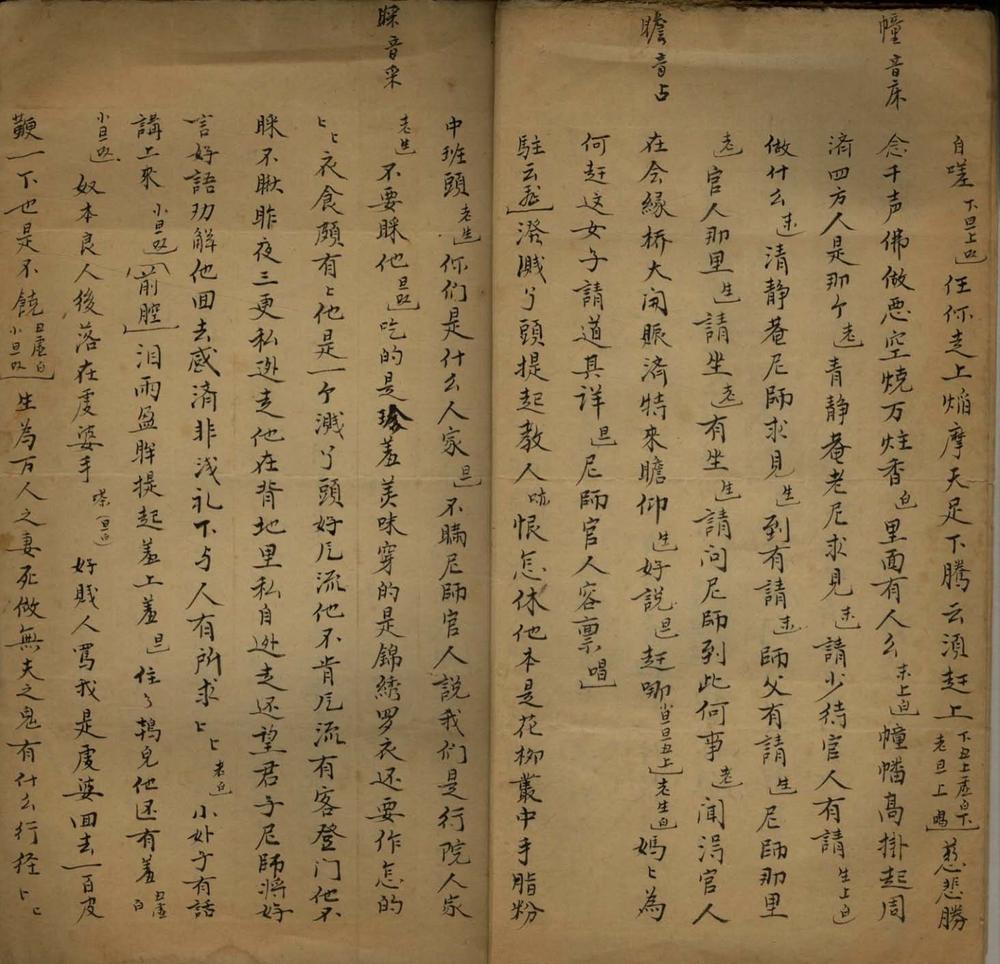 幢音床
瞻音占
自嗟下旦上叹任你走上焰摩天足下騰云須赶上下丑上虛白下老旦上唱慈悲勝
念千声佛做恶空燒万炷香白里面有人么末上白幢幡高掛起周
済四方人是那个老青静菴老尼求見末請少待官人有請生上白
做什么末清静菴尼師求見生到有請末師父有請生尼師那里
老官人那里生請坐老有坐生請问尼師到此何事老闻淂官人
在会縁桥大開賑済特来瞻仰生好説旦赶脚小旦丑上老生白媽匕為
何赶这女子請道其详旦尼師官人容禀唱
駐云飞潑賤丫頭提起教人恨怎休他本是花柳叢中手脂粉
睬音采
中班頭老生你们是什么人家旦不瞞尼師官人説我们是行院人家
老生不要睬他旦叹吃的是珍羞美味穿的是錦綉罗衣还要作怎的
匕匕衣食頗有匕他是一个賤丫頭好风流他不肯风流有客登门他不
睬不瞅昨夜三更私逃走他在背地里私自逃走还望君子尼師將好
言好語劝解他回去感済非浅礼下与人有所求匕匕老白小妣子有話
講上來小旦叹前腔泪雨盈眸提起羞上羞旦住了鸨兒他还有羞丑虛白
小旦叹奴本良人後落在虔婆手嗏旦白好賤人罵我是虔婆回去一百皮
鞭一下也是不饒丑虛白小旦叹生為万人之妻死做無夫之鬼有什么行径匕匕